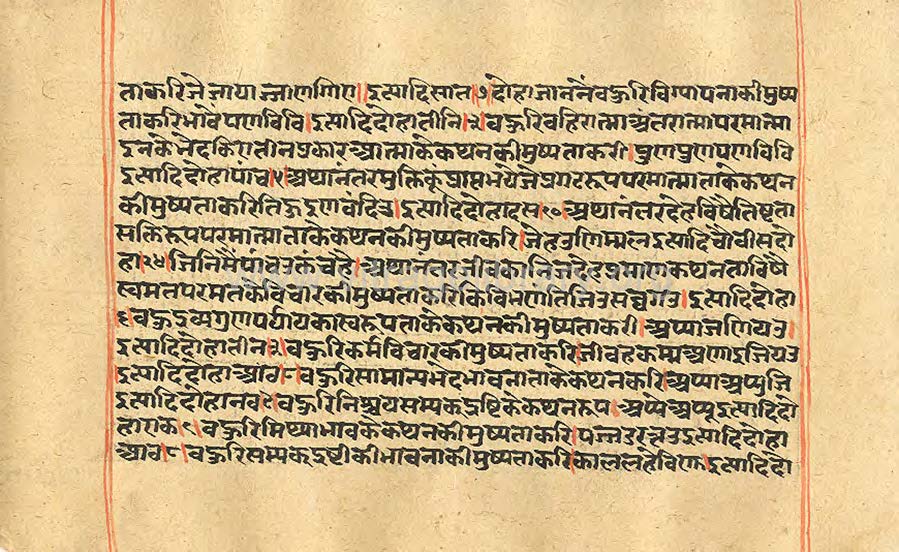 ताकरिजे जाया ज्झाणगिए।इत्यादिसात।७।दोहाजाननैंबहुरिविग्यापनाकीमुष्य
ताकरिभावेंपणविवि।इत्यादिदोहातीनि।३।बहुरिबहिरात्माअंतरात्मापरमात्मा
इनकेभेदकरितीनप्रकारआत्माकेकथनकीमुष्यताकरी।पुणुपुणुपणविवि
इत्यादिदोहापांच।५।अथानंतरमुक्तिकूंप्राप्तभयेजेप्रगटरूपपरमात्माताकेकथन
कीमुष्यताकरितिहुइणवंदिउ।इत्यादिदोहादस।१०।अथानंतरदेहविषैतिष्टता
सक्तिरूपपरमात्माताकेकथनकीमुष्यताकरि।जेहउणिम्मलइत्यादिचौवीसदो
हा।२४।जिनिमैं अथानंतरजीवकानिजदेहप्रमाणकथनताविषै
स्वमतपरमतकेविचारकीमुष्यताकरिकिविभणतिजिउसव्वगउ।इत्यादिदोहा
६।बहुद्रव्यगुणपर्यायकास्वरूपताकेकथनकीमुष्यताकरी।अप्पाजणियउ।
इत्यादिदोहातीन।३।बहुरिकर्मविचारकीमुष्यताकरि।जीवहकम्मअणाइजियउ
इत्यादिदोहाआठ।८।बहुरिसामान्यभेदभावनाताकेकथनकरि।अप्पाअप्पुजि
इत्यादिदोहानव।९।बहुरिनिश्चयसम्यकदृष्टिकेकथनरूप।अप्पेअप्पुइत्यादिदो
हाएक।१।बहुरिमिथ्याभावकेकथनकीमुष्यताकरि।पज्जउरत्तउइत्यादिदोहा
आठ।८।बहुरिसम्यक्दृष्टीकीभावनाकीमुष्यताकरि।काललहेविणु।इत्यादिदो